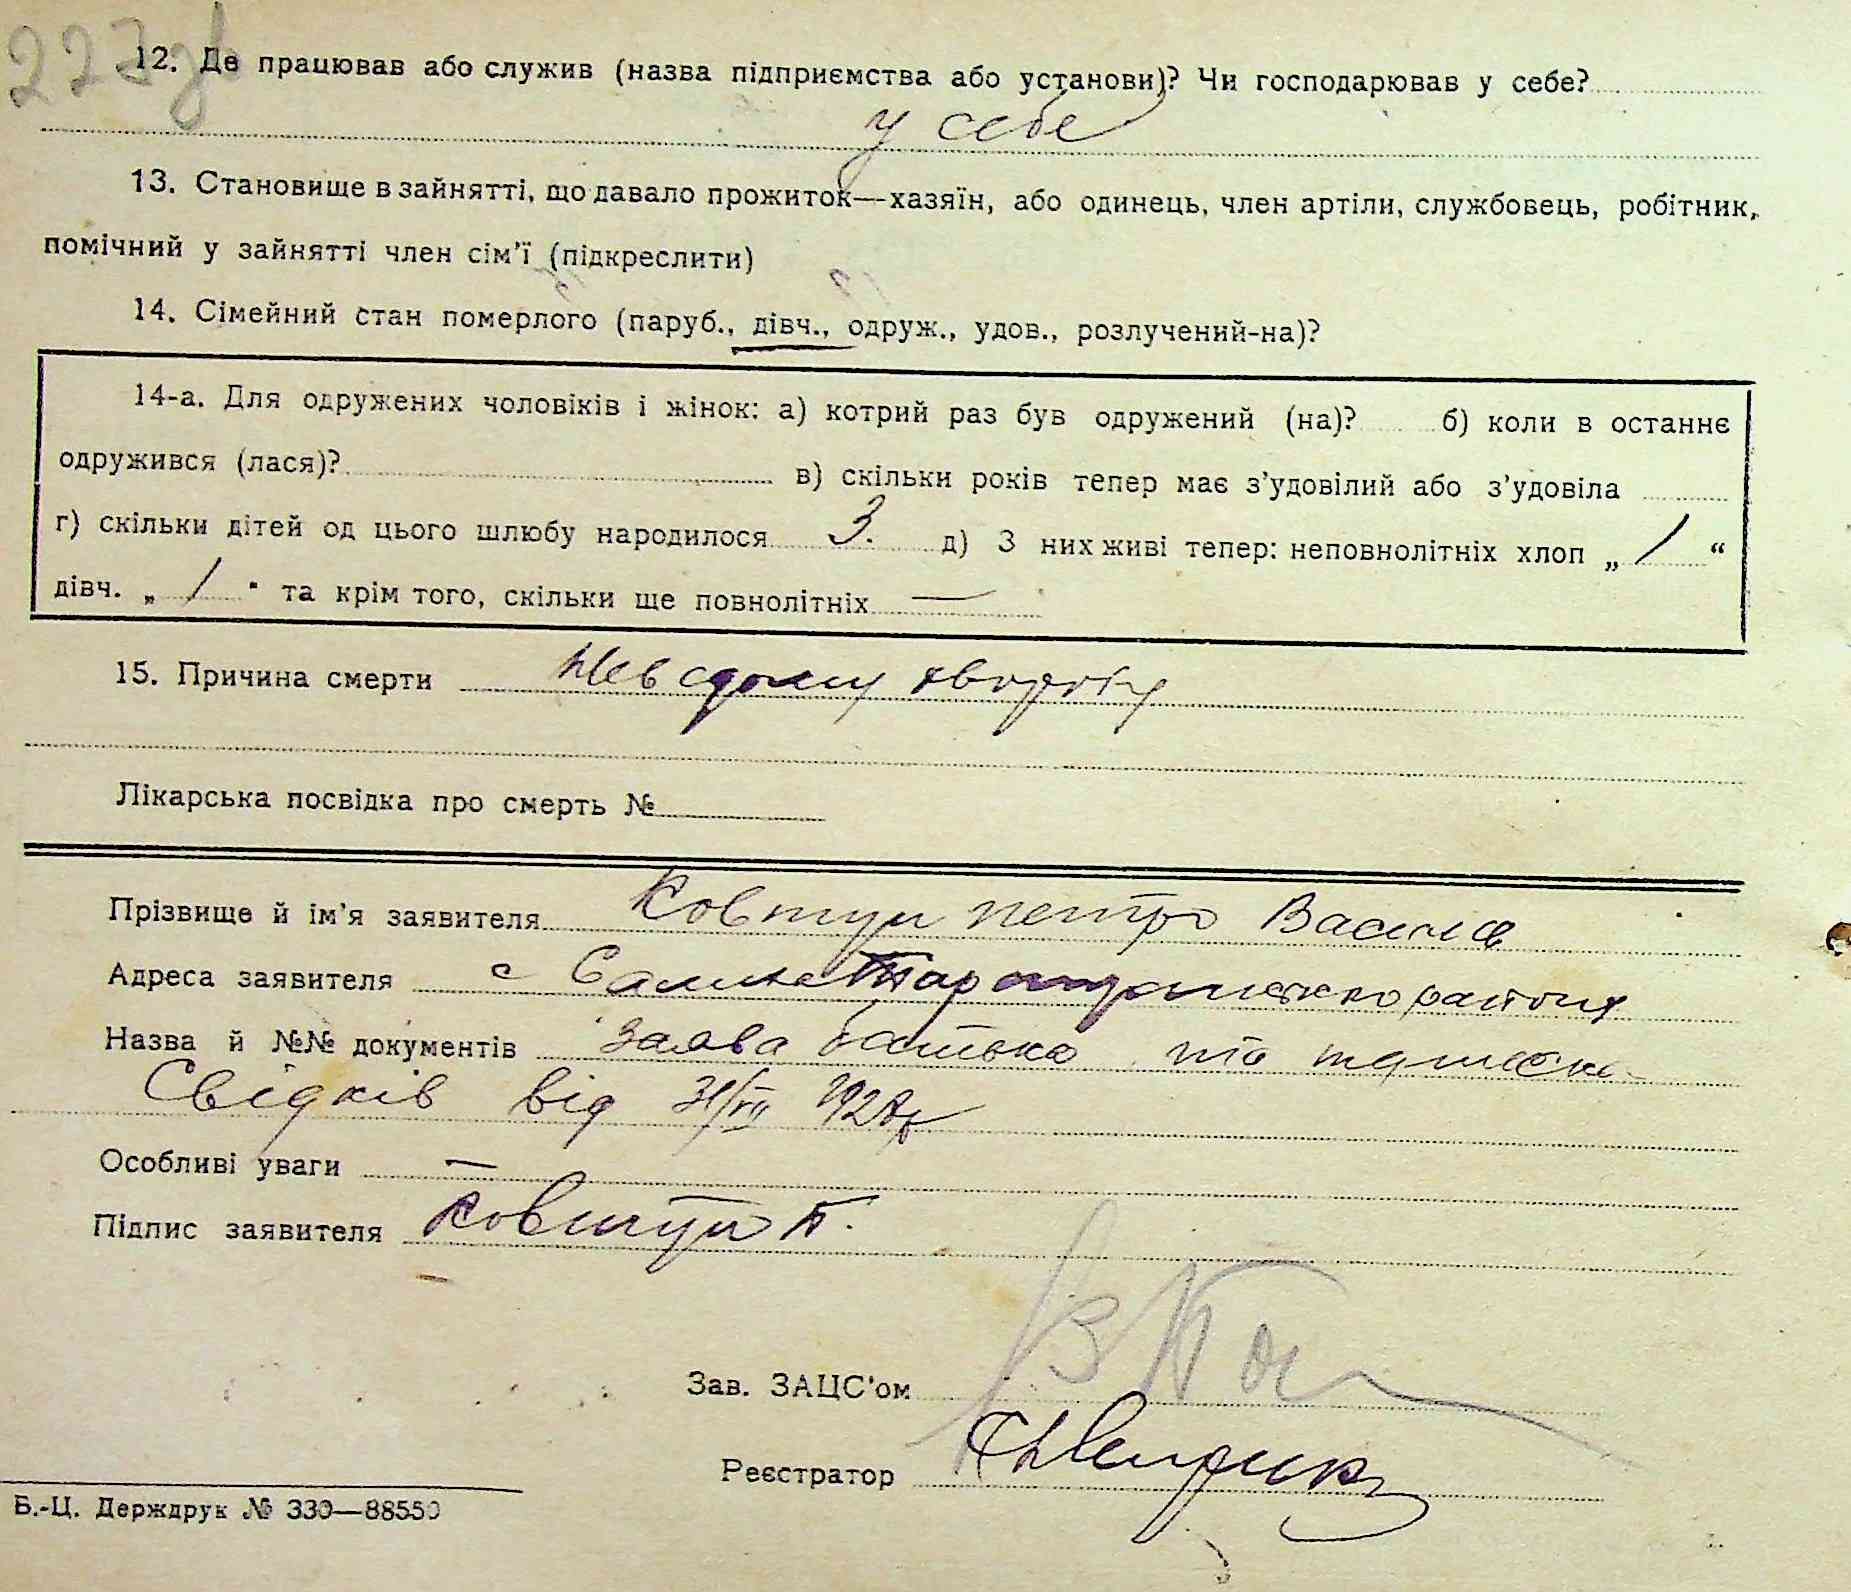 12. Де працював або служив (назва підприємства або установи)? Чи господарював у себе?
у себе
13. Становище в зайнятті, що давало прожиток—хазяїн, або одинець, член артіли, службовець, робітник,
помічний у зайнятті член сім'ї (підкреслити)
14. Сімейний стан померлого (паруб., дівч., одруж., удов., розлучений-на)?
14-а. Для одружених чоловіків і жінок: а) котрий раз був одружений (на)? б) коли в останнє
одружився (лася)? в) скільки років тепер має з'удовілий або з'удовіла
г) скільки дітей од цього шлюбу народилося 3. д) З них живі тепер: неповнолітніх хлоп „ 1 “
дівч. „ 1 “ та крім того, скільки ще повнолітніх —
15. Причина смерти
Лікарська посвідка про смерть №
Прізвище й ім'я заявителя Ковтун Петро
Адреса заявителя с району
Назва й №№ документів Заява батька та
Свідків від 31/VII
Особливі уваги —
Підпис заявителя Ковтун П.
Зав. ЗАЦС'ом
Реєстратор
Б.-Ц. Держдрук № 330—88550